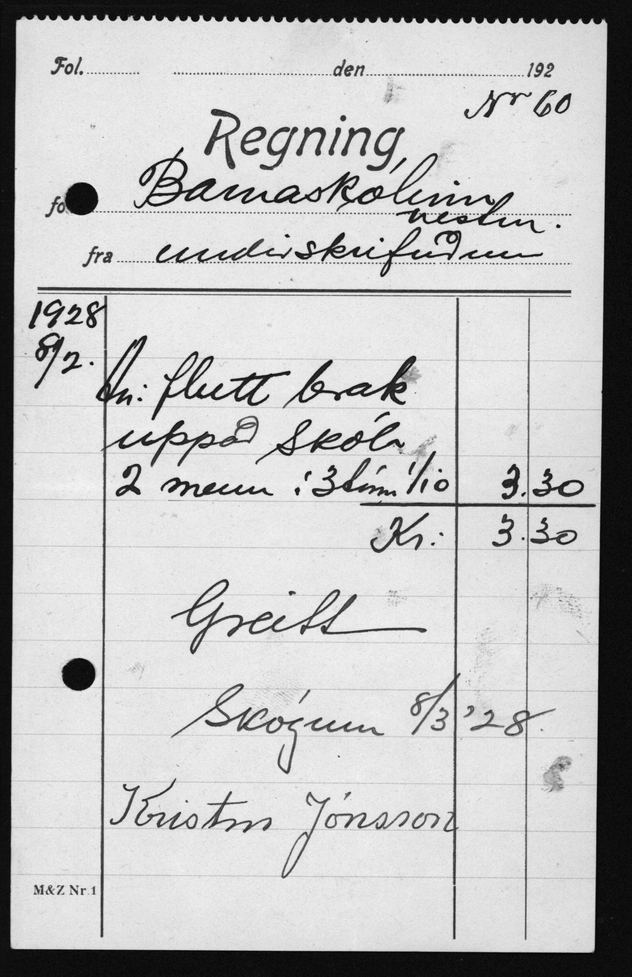 Fol. den 192
Nr 60
Regning
Barnaskólinn
Vestm.
fra undirskrifuðum
1928
8/2. flutt brak
uppað Skóla
2 menn í 1/10 3.30
Kr: 3.30
Greitt
Skógum 8/3 '28.
Kristinn Jónsson
M&Z Nr. 1